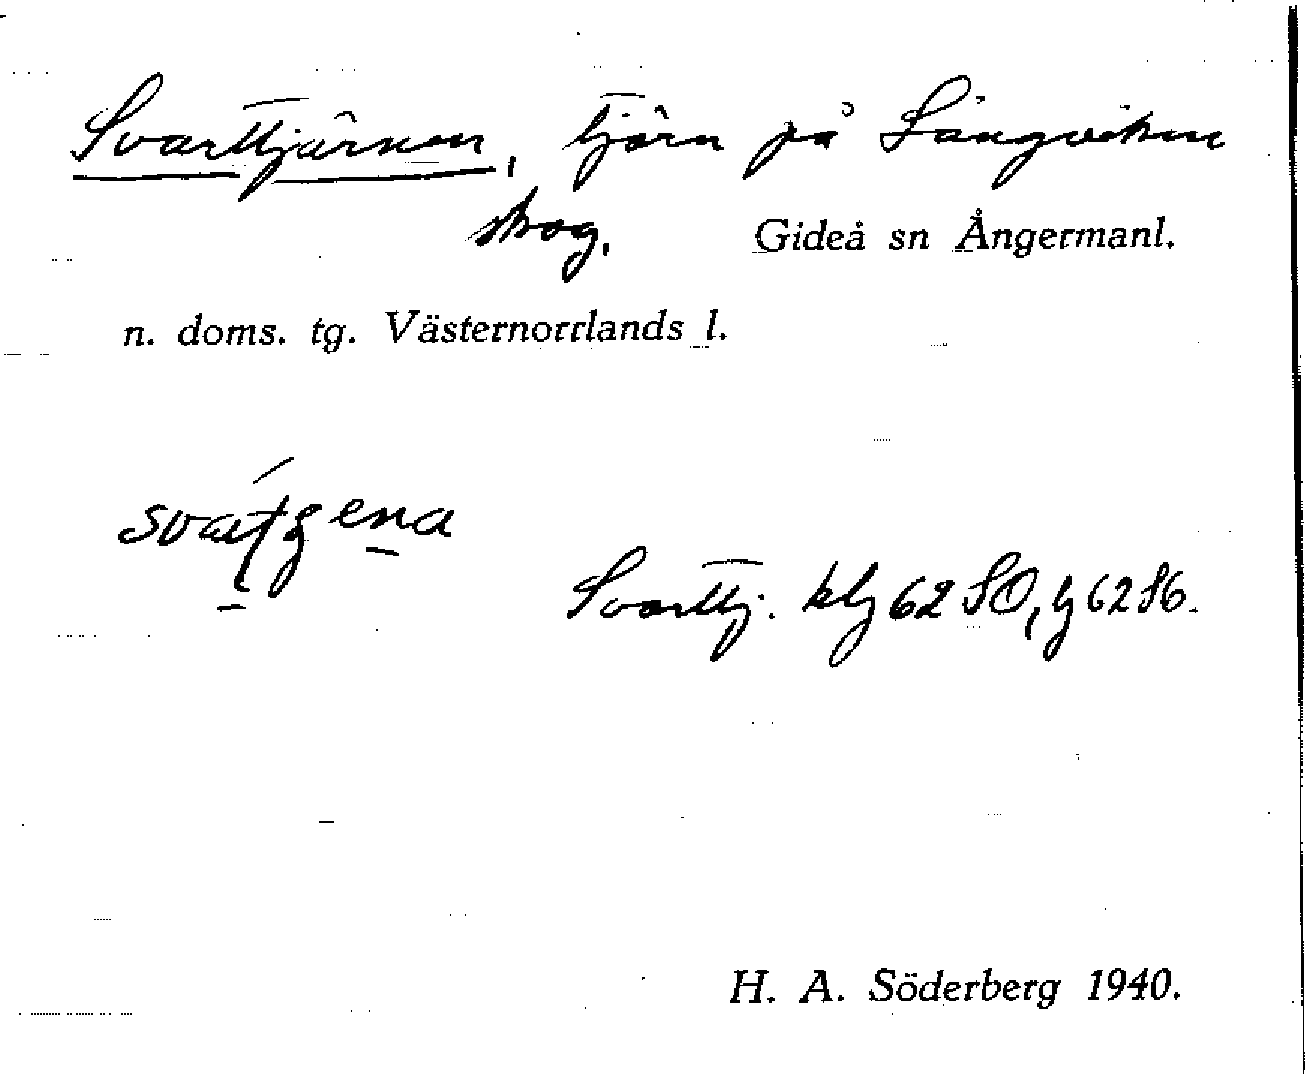 Svarttjärnen, tjärn på Långvikens
skog. Gideå sn Ångermanl.
n. doms. tg. Västernorrlands l.
Svarttj. klg 62 SO, g 62 S6.
H. A. Söderberg 1940.